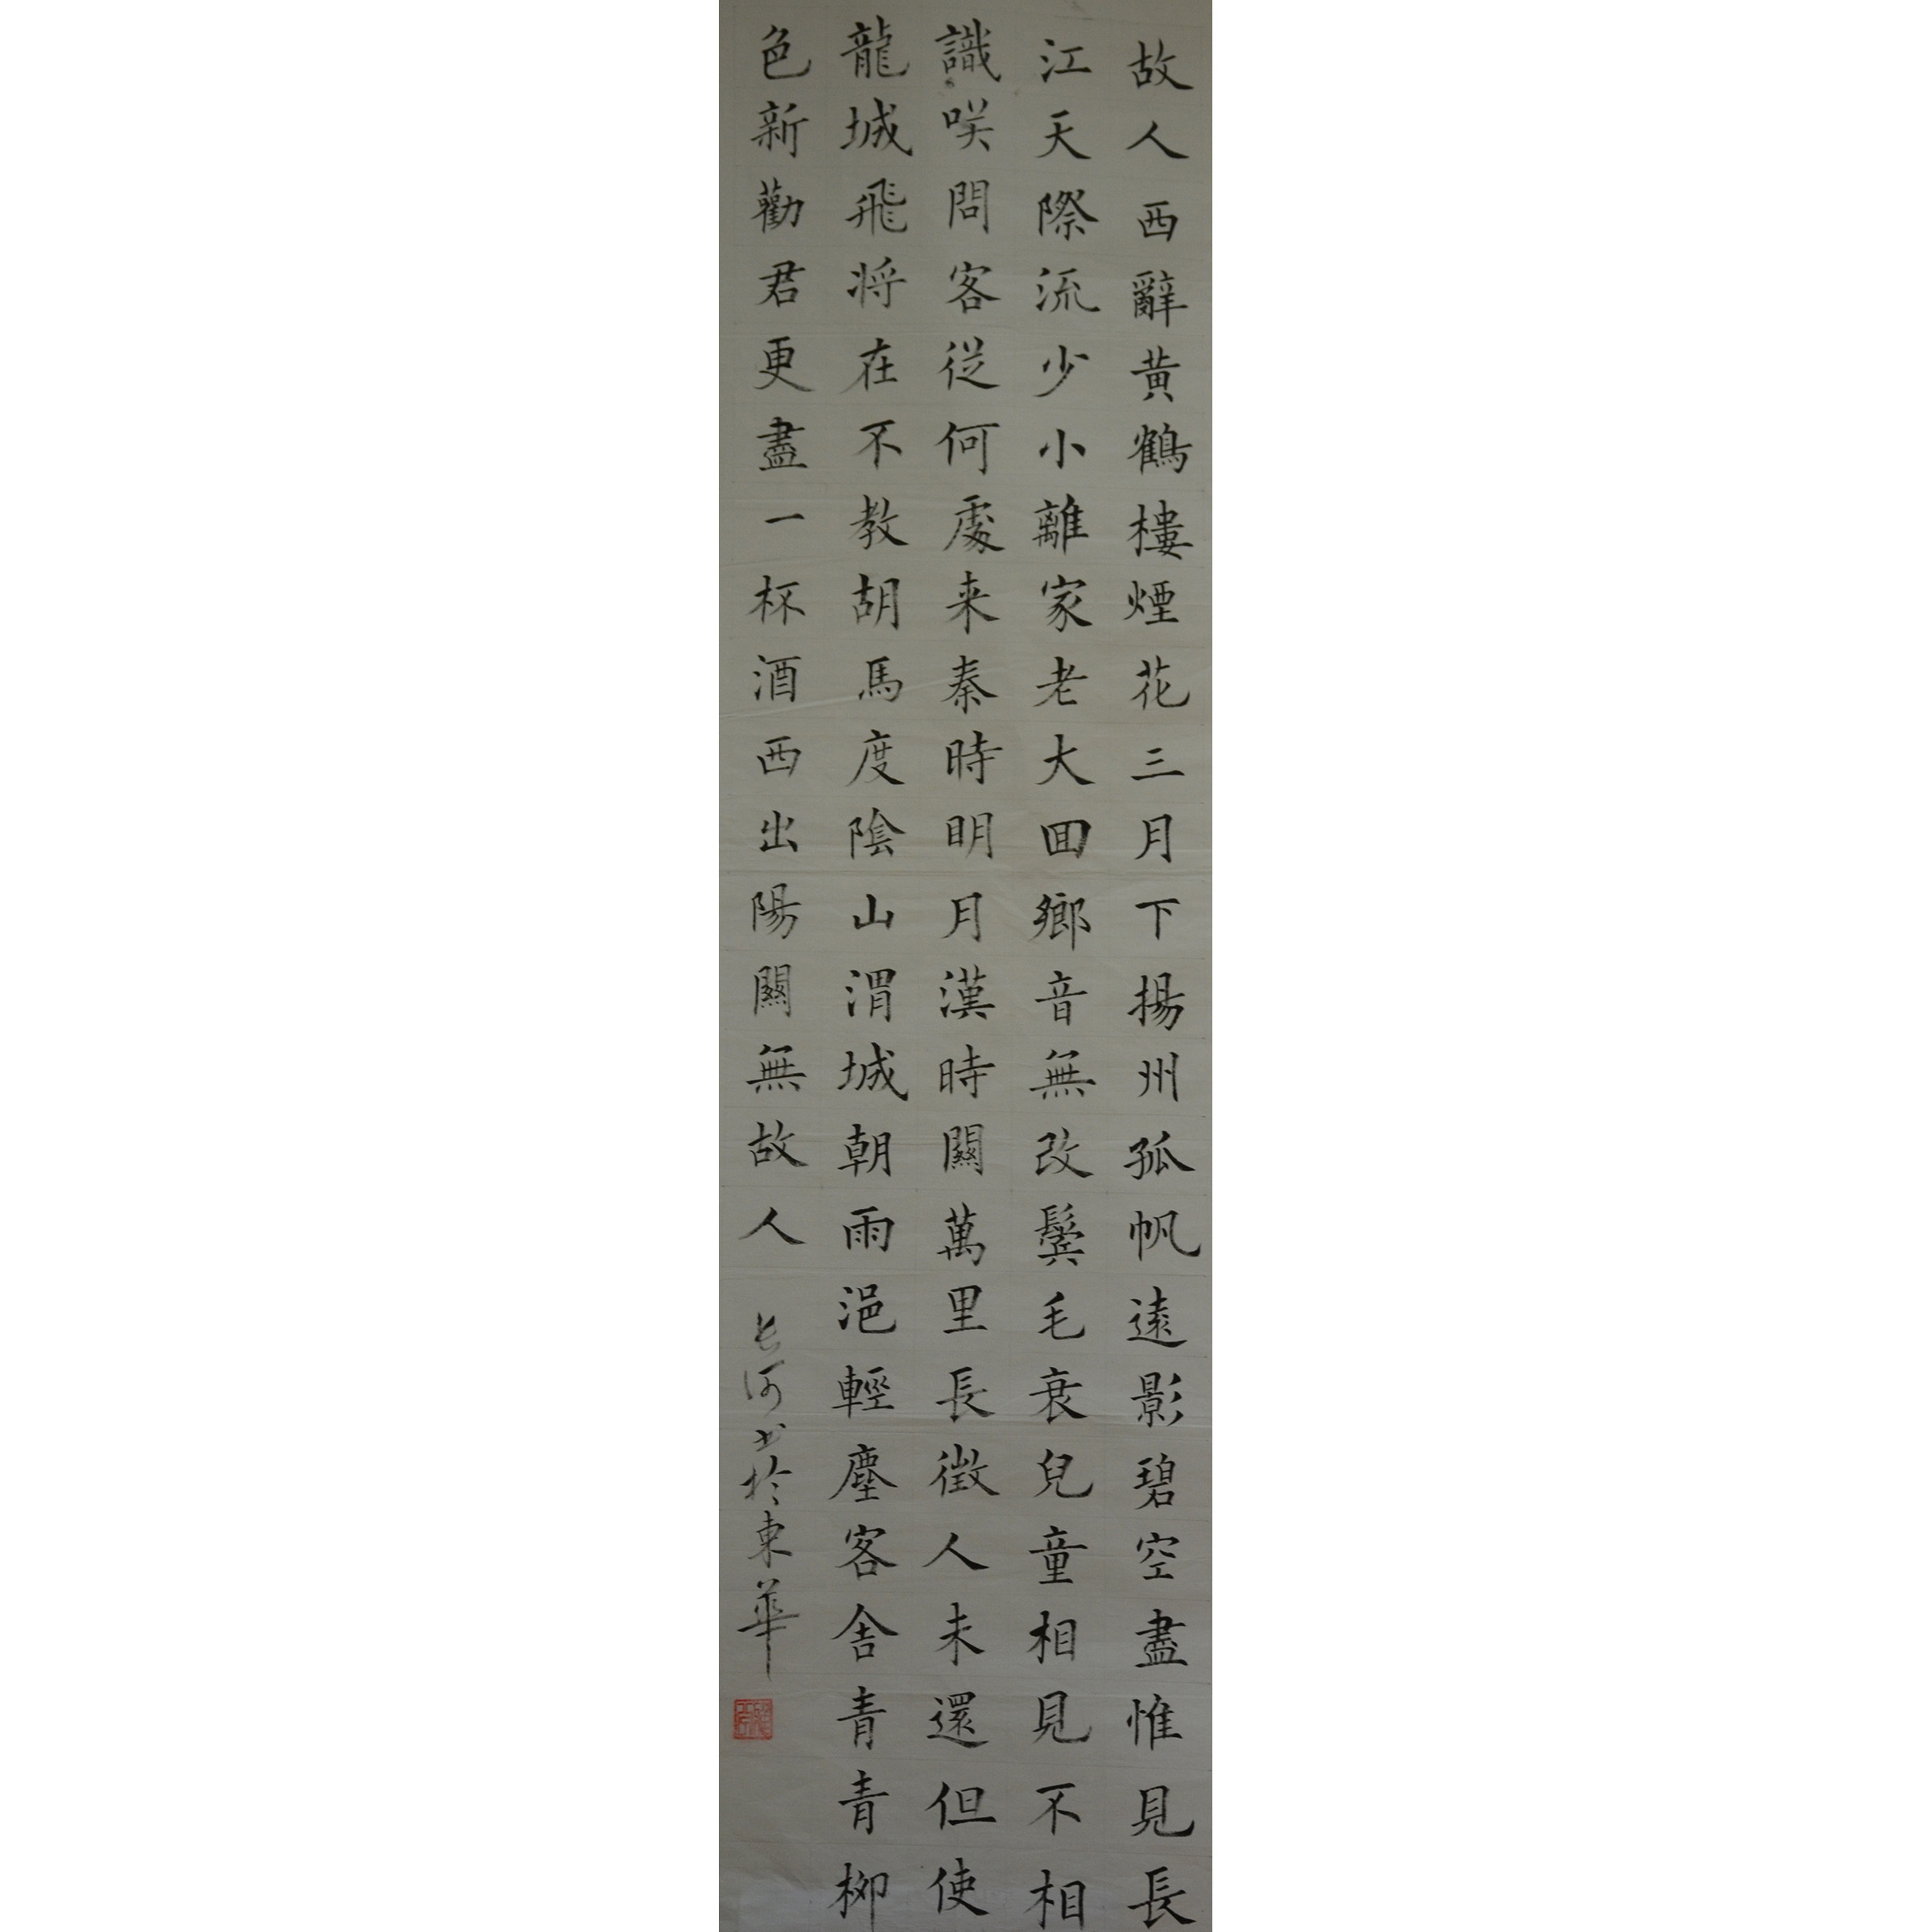 故人西辭黄鶴樓煙花三月下揚州孤帆遠影碧空盡惟見長
江天際流少小離家老大回鄉音無改鬢毛衰兒童相見不相
識咲問客從何處来秦時明月漢時關萬里長徴人未還但使
龍城飛将在不教胡馬度陰山渭城朝雨浥輕塵客舎青青柳
色新勸君更盡一杯酒西出陽關無故人
長河书於東華